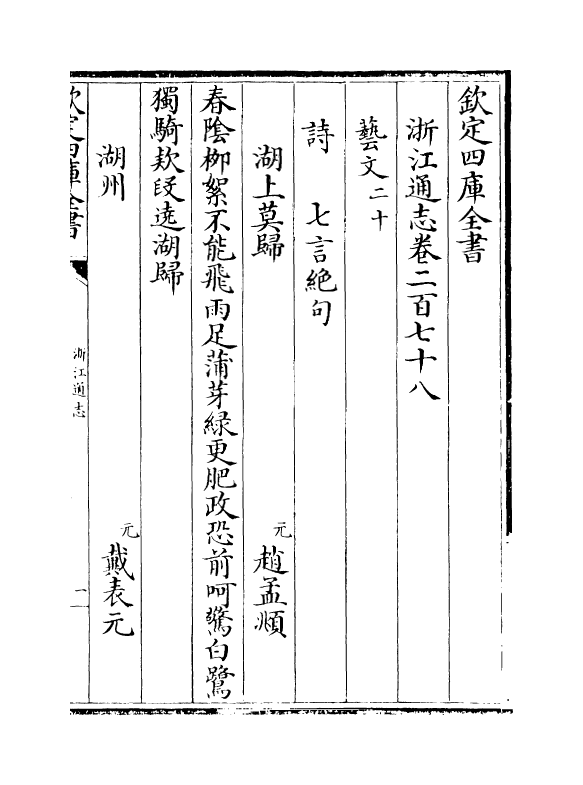 欽定四庫全書
浙江通志卷二百七十八
藝文二十
詩 七言絶句
湖上莫歸 元趙孟頫
春陰栁絮不能飛雨足蒲芽緑更肥政恐前呵驚白鷺
獨騎欵叚遶湖歸
湖州 元戴表元
欽定四庫全書
浙江通志